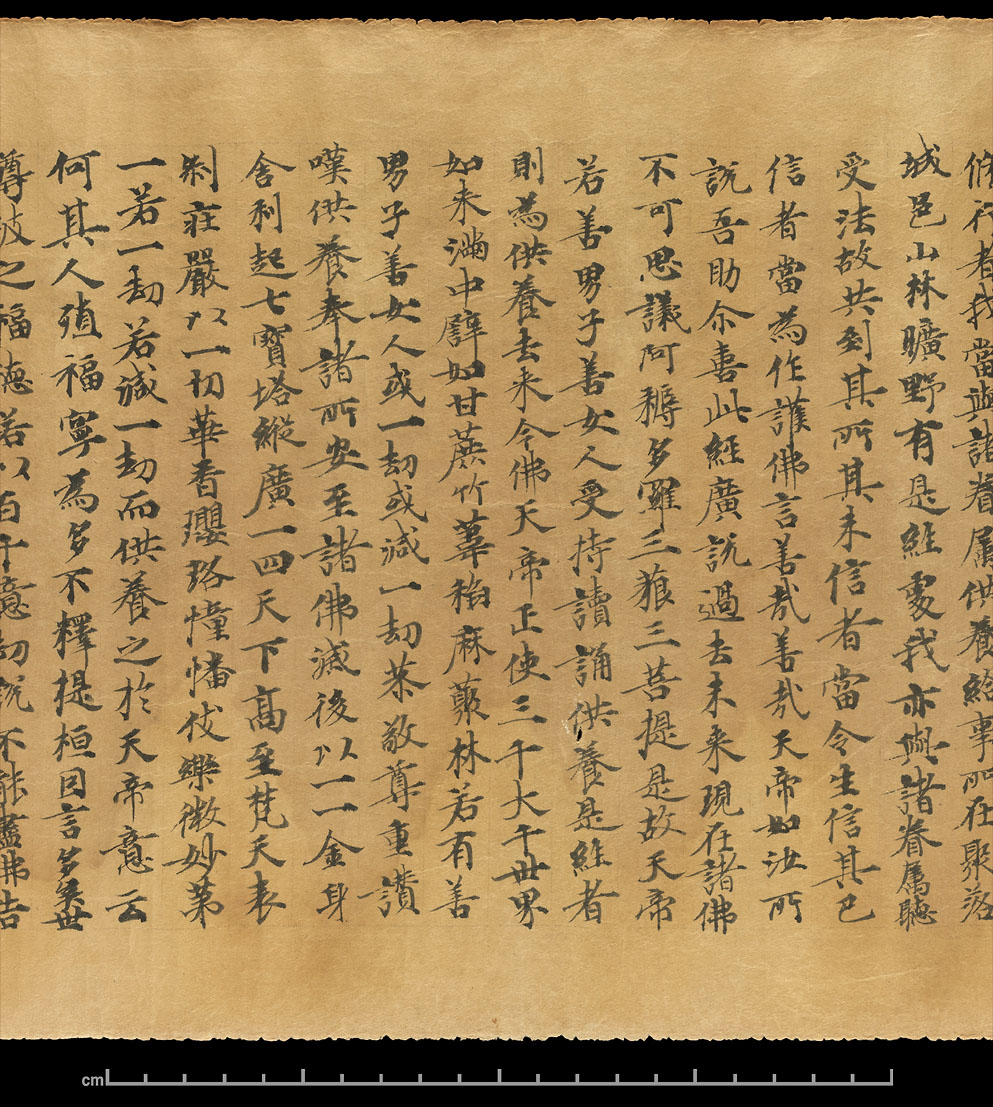 脩行者我當與諸眷属供養給事所在聚落
城邑山林曠野有是経處我亦與諸眷属聴
受法故共到其所其未信者當令生信其已
信者當為作護佛言善哉善哉天帝如汝所
說吾助尒喜此經廣說過去未来現在諸佛
不可思議阿耨多羅三藐三菩提是故天帝
若善男子善女人受持讀誦供養是経者
則為供養去来今佛天帝正使三千大千世界
如来満中譬如甘蔗竹葦稻麻藂林若有善
男子善女人或一劫或減一劫恭敬尊重讚
嘆供養奉諸所安至諸佛滅後以一一金身
舍利起七寶塔縱廣一四天下髙至梵天表
刹莊嚴以一切華香瓔珞幢幡伎樂微妙第
一若一劫若減一劫而供養之於天帝意云
何其人殖福寧為多不釋提桓因言多矣世
尊彼之福德若以百千億劫說不能盡佛告